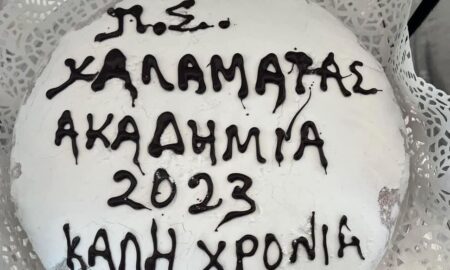 Π.Σ.
ΧΑΛΑΜΑΤΑΣ
ΑΚΑΔΗΜΙΑ
2023
ΚΑΛΗ ΧΡΟΝΙΑ